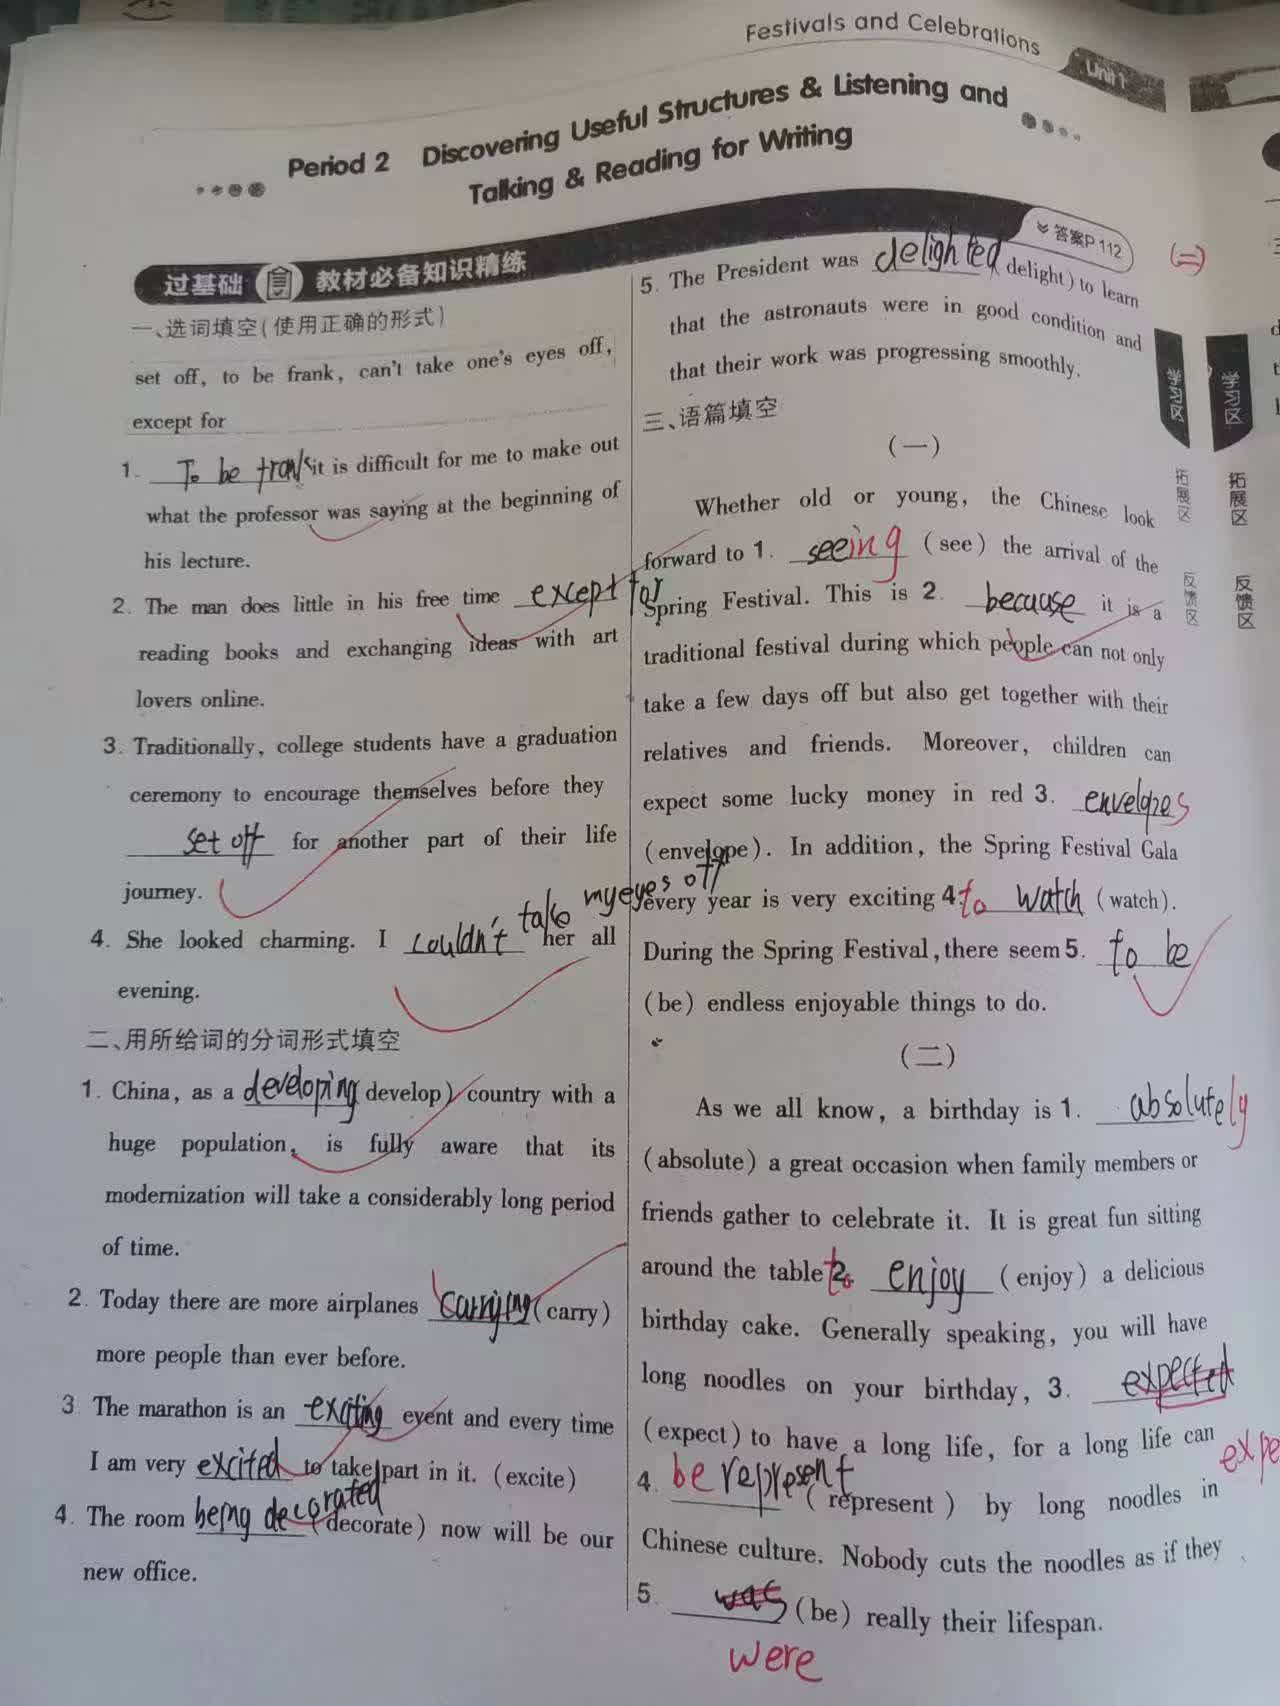 Festivals and Celebrations
Unit 1
Period 2 Discovering Useful Structures & Listening and
Talking & Reading for Writing
答案P.112
过基础 教材必备知识精练
一、选词填空(使用正确的形式)
set off, to be frank, can't take one's eyes off,
except for
1. To be it is difficult for me to make out
what the professor was saying at the beginning of
his lecture.
2. The man does little in his free time except for
reading books and exchanging ideas with art
lovers online.
3. Traditionally, college students have a graduation
ceremony to encourage themselves before they
set off for another part of their life
journey.
4. She looked charming. I couldn't take my eyes off her all
evening.
二、用所给词的分词形式填空
1. China, as a developing develop) country with a
huge population, is fully aware that its
modernization will take a considerably long period
of time.
2. Today there are more airplanes carrying (carry)
more people than ever before.
3 The marathon is an exciting event and every time
I am very excited to take part in it. (excite)
4. The room being decorated (decorate) now will be our
new office.
5. The President was delighted delight) to learn
that the astronauts were in good condition and
that their work was progressing smoothly.
三、语篇填空
(一)
Whether old or young, the Chinese look
forward to 1. seeing (see) the arrival of the
Spring Festival. This is 2. because it is a
traditional festival during which people can not only
take a few days off but also get together with their
relatives and friends. Moreover, children can
expect some lucky money in red 3. envelopes
(envelope). In addition, the Spring Festival Gala
every year is very exciting 4. to watch (watch).
During the Spring Festival, there seem 5. to be
(be) endless enjoyable things to do.
(二)
As we all know, a birthday is 1. absolutely
(absolute) a great occasion when family members or
friends gather to celebrate it. It is great fun sitting
around the table 2. to enjoy (enjoy) a delicious
birthday cake. Generally speaking, you will have
long noodles on your birthday, 3. expected
(expect) to have a long life, for a long life can
expe
4. be represent (represent) by long noodles in
Chinese culture. Nobody cuts the noodles as if they
5. was (be) really their lifespan.
were
(二)
学习区
拓展区
反馈区
学习区
拓展区
反馈区